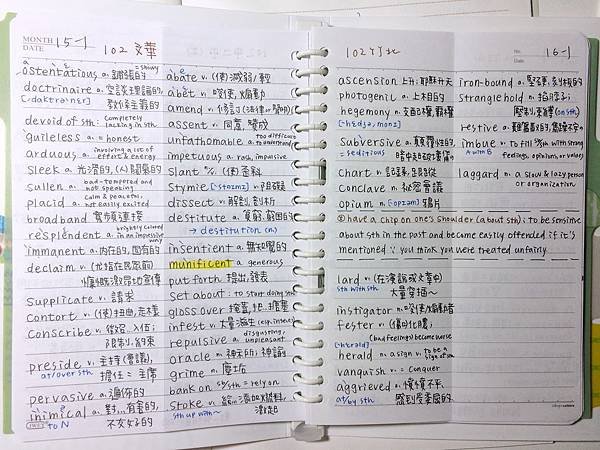 MONTH
DATE
15-1
102 文華
ostentatious a. 誇張的 = showy
doctrinaire a. 空談理論的,
教條主義的
devoid of sth: completely
lacking in sth
guileless a. = honest
arduous a. involving a lot of
effort & energy
sleek a. 光滑的,
sullen a. bad-tempered and
not speaking
placid a. calm & peaceful,
not easily excited
broadband 寬頻連接
resplendent a. brightly colored
in an impressive
way
immanent a. 內在的, 固有的
declaim v. (尤指在民眾前)
慷慨激昂地宣傳
supplicate v. 請求
contort v. (使)扭曲, 走樣
conscribe v. 徵召, 入伍;
限制, 約束
preside v. 主持(會議),
at/over sth 擔任 = 主席
pervasive a. 遍佈的
inimical a. 對...有害的,
to N 不友好的
abate v. (使)減弱/輕
abet v. 唆使, 煽動
amend v. 修訂
assent v. 同意, 贊成
unfathomable a. too difficult
to understand
impetuous a. rash, impulsive
slant n./v. (使)歪斜
stymie v. 阻礙
dissect v. 解剖, 剖析
destitute a. 貧窮, 窮困的
→ destitution (n.)
insentient a. 無知覺的
munificent a. generous
put forth 提出, 發表
set about: to start doing sth
gloss over 掩蓋, 把..掩蓋
infest v. 大量滋生 (esp. insects)
repulsive a. disgusting,
unpleasant
oracle n. 神示所; 神諭
grime n. 塵垢
bank on sb/sth = rely on
stoke v. 給...添加燃料,
sth up with~
102竹北
No.
Date
16-1
ascension 上升; 耶穌升天
photogenic a. 上相的
hegemony n. 支配權, 霸權
subversive a. 顛覆性的,
= seditious
chart v. 記錄, 跟踪
conclave n. 秘密會議
opium n. 鴉片
have a chip on one's shoulder (about sth): to be sensitive
about sth in the past and become easily offended if it's
mentioned ∵ you think you were treated unfairly
lard v. (在演講或文章中)
sth with sth 大量穿插~
instigator n. = 唆使/煽動者
fester v. (傷口)化膿,
(bad feelings) become worse
herald n. a sign v. to be a
sign of sth
vanquish v. = conquer
aggrieved a. 憤憤不平,
at/by sth 感到受委屈的
iron-bound a. 堅硬, 刻板的
stranglehold n. 掐脖子;
壓制, 束縛 (on sth)
restive a.
imbue v. to fill sb/sth with strong
A with B feelings, opinions, or values
laggard n. a slow & lazy person
or organization